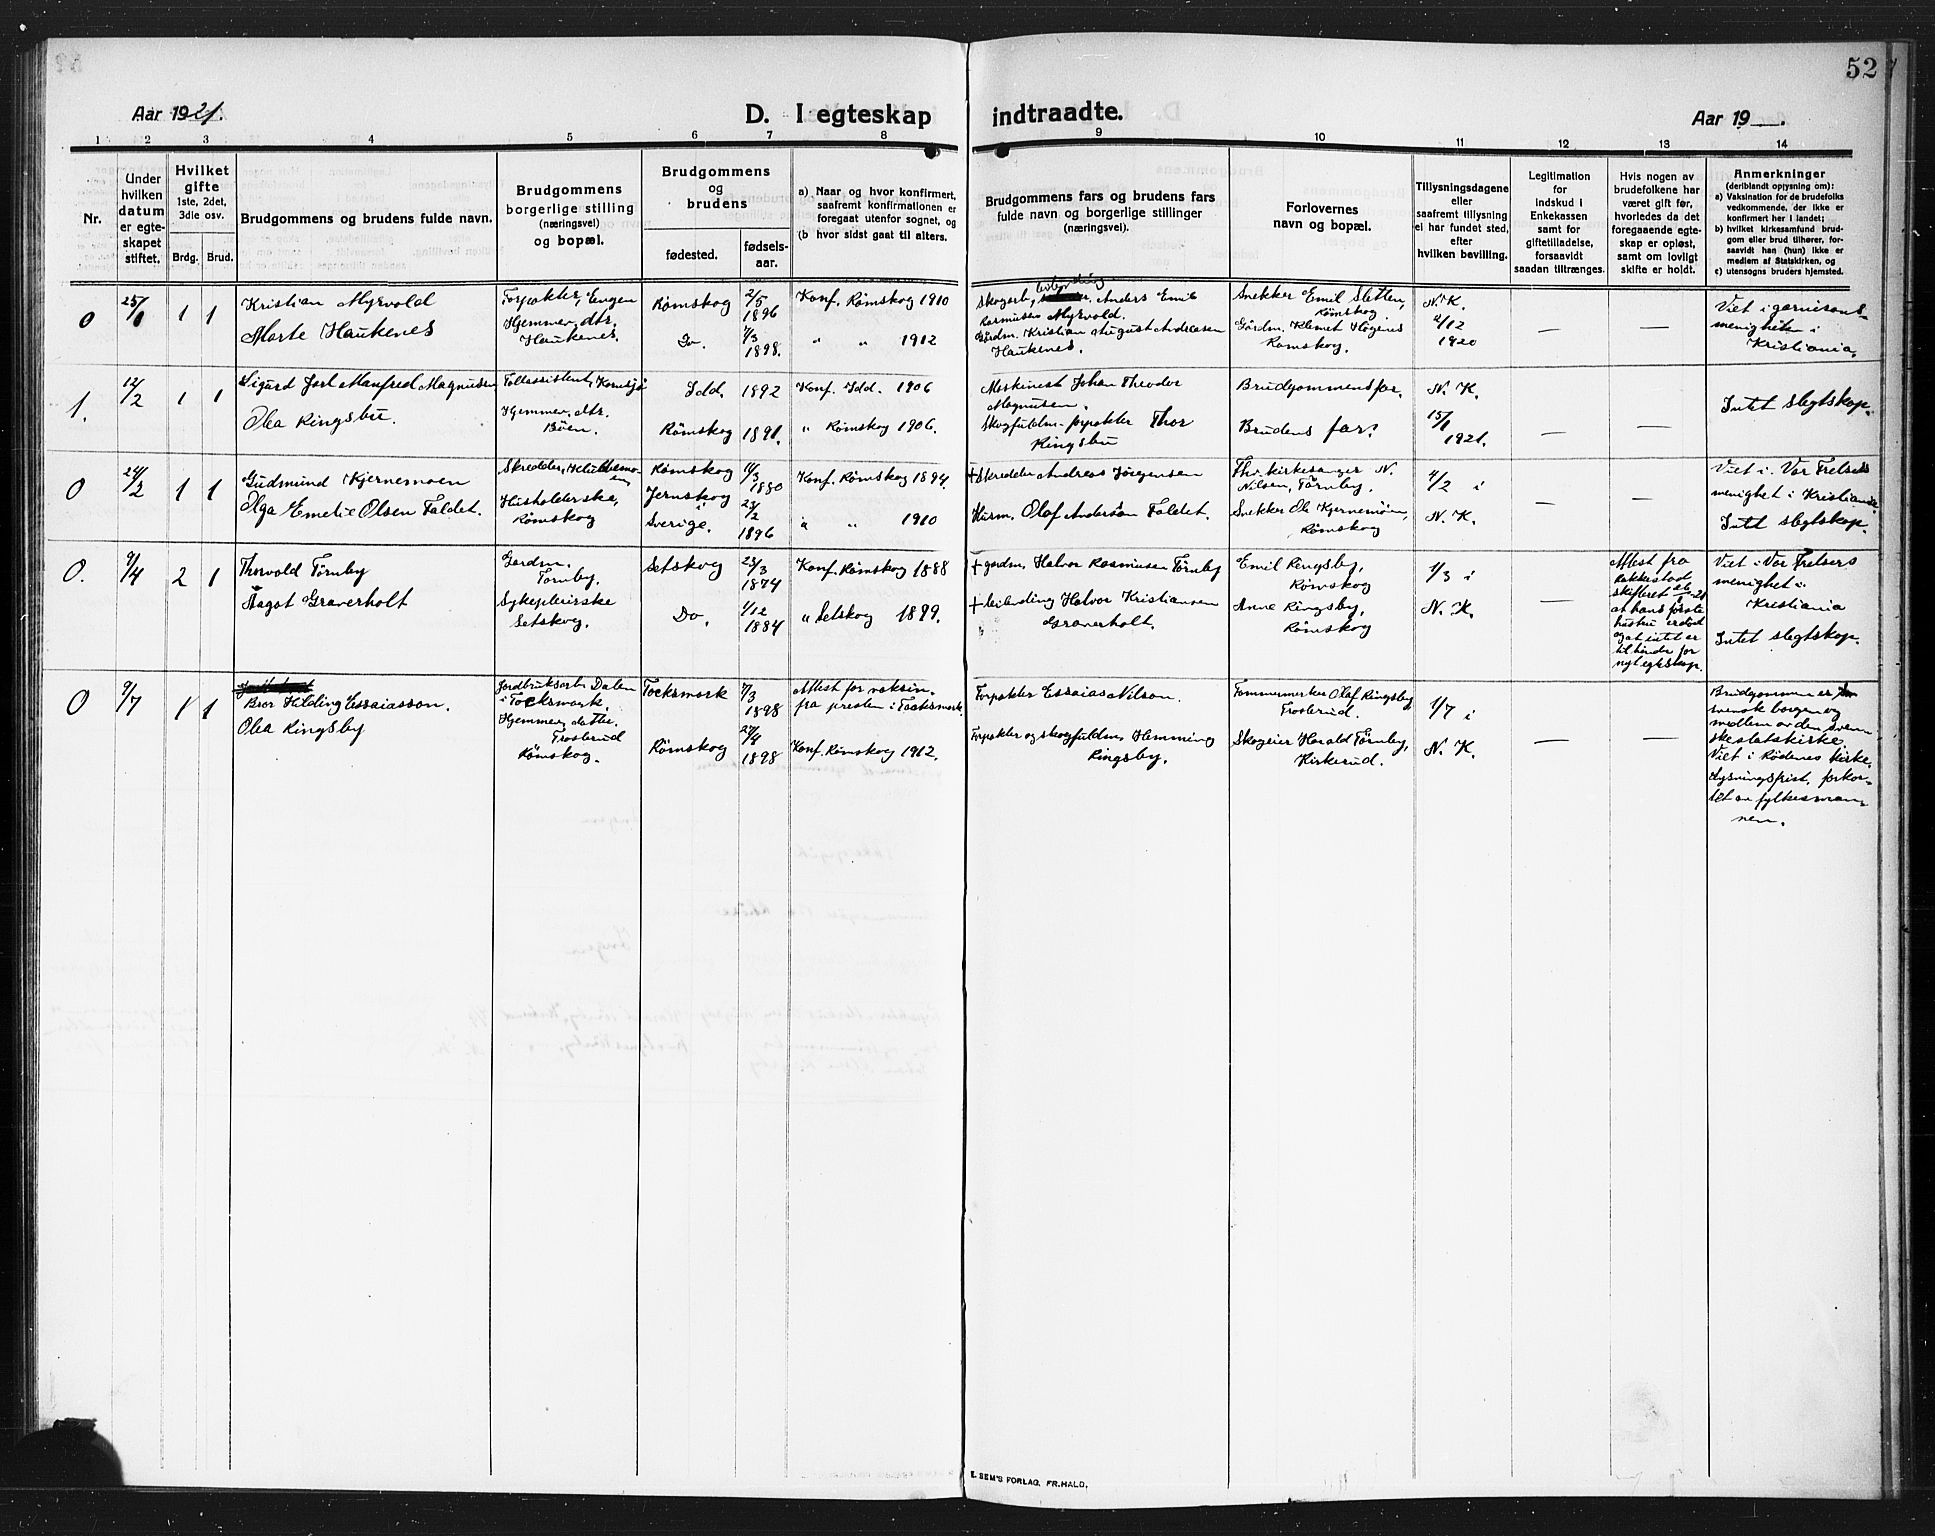 52
Aar 1921.
D. I egteskap indtraadte.
Aar 19 .
1 2 3 4 5 6 7 8 9 10 11 12 13 14
Nr.
Under
hvilken
datum
er egte-
skapet
stiftet.
Hvilket
gifte
1ste, 2det,
3die osv.
Brdg. Brud.
Brudgommens og brudens fulde navn.
Brudgommens
borgerlige stilling
(næringsvei)
og bopæl.
Brudgommens
og
brudens
fødested.
fødsels-
aar.
a) Naar og hvor konfirmert,
saafremt konfirmationen er
foregaat utenfor sognet, og
(b hvor sidst gaat til alters.
Brudgommens fars og brudens fars
fulde navn og borgerlige stillinger
(næringsvei).
Forlovernes
navn og bopæl.
Tillysningsdagene
eller
saafremt tillysning
ei har fundet sted,
efter
hvilken bevilling.
Legitimation
for
indskud i
Enkekassen
samt for
giftetilladelse,
forsaavidt
saadan tiltrænges.
Hvis nogen av
brudefolkene har
været gift før,
hvorledes da det
foregaaende egte-
skap er opløst,
samt om lovligt
skifte er holdt.
Anmerkninger
(deriblandt oplysning om):
a) Vaksination for de brudefolks
vedkommende, der ikke er
konfirmert her i landet;
b) hvilket kirkesamfund brud-
gom eller brud tilhører, for-
saavidt han (hun) ikke er
medlem af Statskirken, og
c) utensogns bruders hjemsted.
0 25/1 1 1
Kristian Myrvold
Marte Haukenes
Forpakter, Engen
Hjemmev. dtr.
Haukenes.
Rømskog 2/5 1896
Do. 4/3 1898.
Konf. Rømskog 1910
" " 1912
Skogarb, Anders Emil
Rasmussen Myrvold.
Gårdm. Kristian August Andreasen
Haukenes.
Snekker Emil Sletten,
Rømskog
Gårdm. Klemet Høgenes
Rømskog.
N. K.
2/12
1920
— —
Viet i garnisons-
menigheten i
Kristiania.
1. 12/2 1 1
Sigurd Jarl Manfred Magnusen
Olea Ringsbu.
Tollassistent, Kornsjø
Hjemmev. dtr.
Bøen.
Idd. 1892
Rømskog 1891.
Konf. Idd. 1906
" Rømskog 1906.
Maskinest Johan Theodor
Magnusen.
Skogfuldm. forpakter Thor
Ringsbu
Brudgommens far.
Brudens far.
N. K.
15/1
1921.
— —
Intet slegtskap.
0 24/2 1 1
Gudmund Kjernemoen
Olga Emelie Olsen Faldet.
Skredder,
Husholderske,
Rømskog
Rømskog 11/3 1880
Jernskog
Sverige. 23/2 1896
Konf. Rømskog 1894.
" " 1910
+ Skredder Andreas Jørgensen
Husm. Olaf Anderson Faldet.
Fhv. kirkesanger N.
Nilsen, Tørnby.
Snekker Ole Kjernemøen,
Rømskog
4/2 i
N. K.
— —
Viet i Vor Frelsers
menighet i Kristiania
Intet slegtskap.
0. 9/4 2 1
Thorvald Tørnby
Aagot Graverholt
Gardm.
Tørnby.
Sykepleierske
Setskog.
Setskog 23/3 1874
Do. 1/12 1884
Konf. Rømskog 1888
" Setskog 1899.
+ gardm. Halvor Rasmussen Tørnby
+ leilending Halvor Kristiansen
" Graverholt.
Emil Ringsby,
Rømskog
Anne Ringsby,
Rømskog
1/3 i
N. K.
—
Attest fra
Rakkestad
skifteret
at hans første
hustru er død
og at intet er
til hinder for
nyt egteskap.
Viet i Vor Frelsers
menighet i
Kristiania
Intet slegtskap.
0 9/7 1 1
Bror Hilding Essaiasson.
Olea Ringsby
Jordbruksarb. Dalen
i Tocksmark.
Hjemmev. datter.
Trosterud
Rømskog.
Tocksmark 7/3 1898
Rømskog 27/4 1898
Attest for vaksin.
fra presten i Tocksmark.
Konf. Rømskog 1912.
Forpakter Essaias Nilson.
Forpakter og skogfuldm. Hemming
Ringsby.
Tømmermerker Olaf Ringsby
Trosterud.
Skogeier Harald Tørnby,
Kirkerud.
1/7 i
N. K.
— —
Brudgommen er
svensk borger og
medlem av den sven-
ske statskirke
Viet i Rødenes kirke.
Lysningsfrist forkor-
tet av fylkesman-
nen.
E. SEM'S FORLAG, FR.HALD.